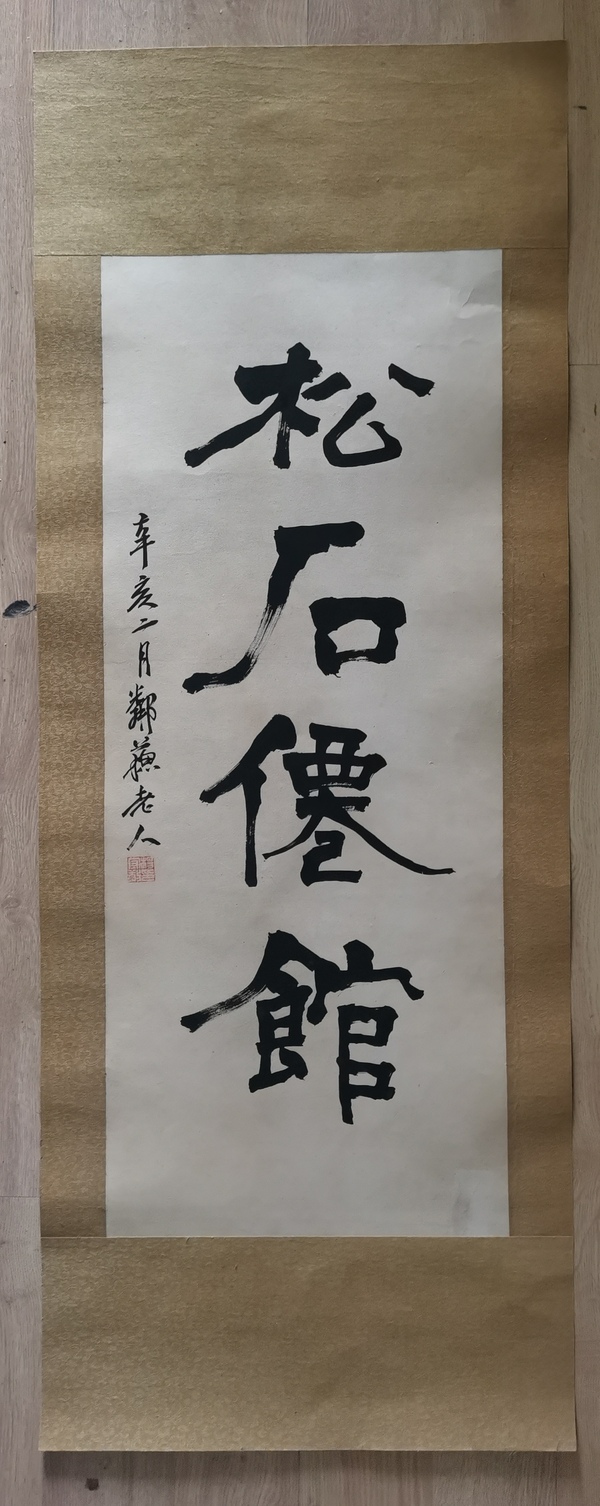 松石僊館
辛亥二月鄰蘇老人